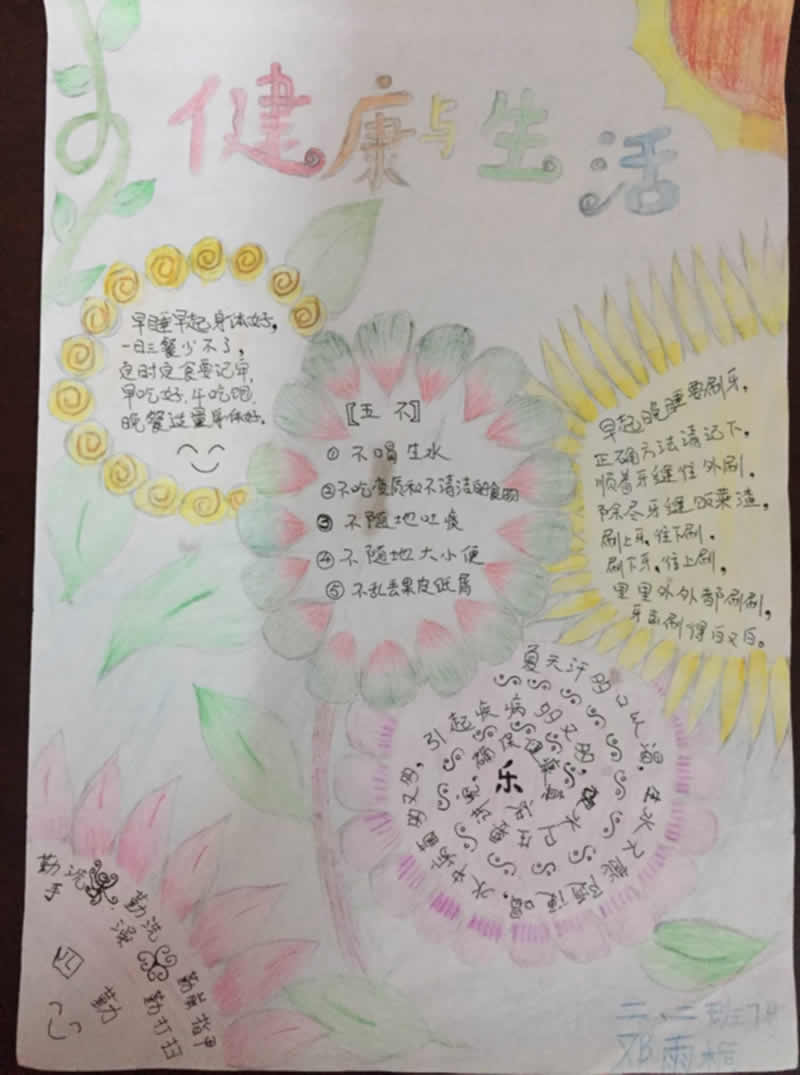 健康与生活
早睡早起身体好，
一日三餐少不了，
定时定食要记牢，
早吃好，午吃饱，
晚餐适量身体好。
【五不】
①不喝生水
②不吃变质和不清洁的食物
③不随地吐痰
④不随地大小便
⑤不乱丢果皮纸屑
早起晚睡要刷牙，
正确方法请记下，
顺着牙缝往外刷，
除尽牙缝饭菜渣，
刷上牙，往下刷，
刷下牙，往上刷，
里里外外都刷刷，
牙齿刷得白又白。
夏天汗多口又渴，生水不能随便喝，水中病菌多又多，引起疾病多又
饮水卫生要讲究，确保健康
乐
勤洗手
勤洗澡
勤剪指甲
勤打扫
四勤
二、二班
邓雨桐